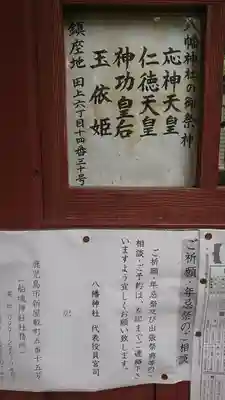 八幡神社の御祭神
応神天皇
仁徳天皇
神功皇后
玉依姫
鎮座地 田上六丁目十四番三十号
ご祈願・年忌祭のご相談
ご祈願、年忌祭及び出張祭典等の
ご相談・ご予約は、左記までご連絡下さ
いますよう宜しくお願い致します。
八幡神社 代表役員宮司
鹿児島市新屋敷町